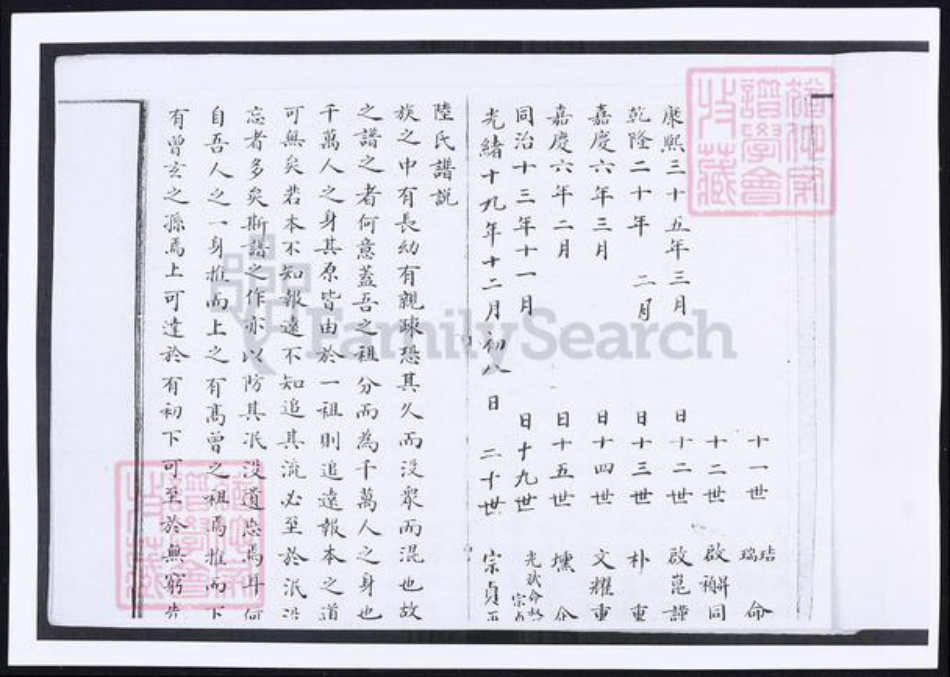 十一世 珤瑞 命
十二世 啟 同
康熙三十五年三月 日十二世 啟崑謹
乾隆二十年 二月 日十三世 朴 重
嘉慶六年三月 日十四世 文耀重
嘉慶六年二月 日十五世 壎
同治十三年十一月 日十九世 光斌命 宗
光緒十九年十二月初八 日 二十世 宗貞
陸氏譜説
族之中有長幼有親疎恐其久而没衆而混也故
之譜之者何意蓋吾之祖分而為千萬人之身也
千萬人之身其原皆由於一祖則追遠報本之道
可無矣若本不知報遠不知追其流必至於泯没
忘者多矣斯譜之作亦以防其泯没遺忘焉耳何
自吾人之一身推而上之有髙曾之祖焉推而下
有曾玄之孫焉上可達於有初下可至於無窮
FamilySearch
譜學會
收藏
譜學會
收藏